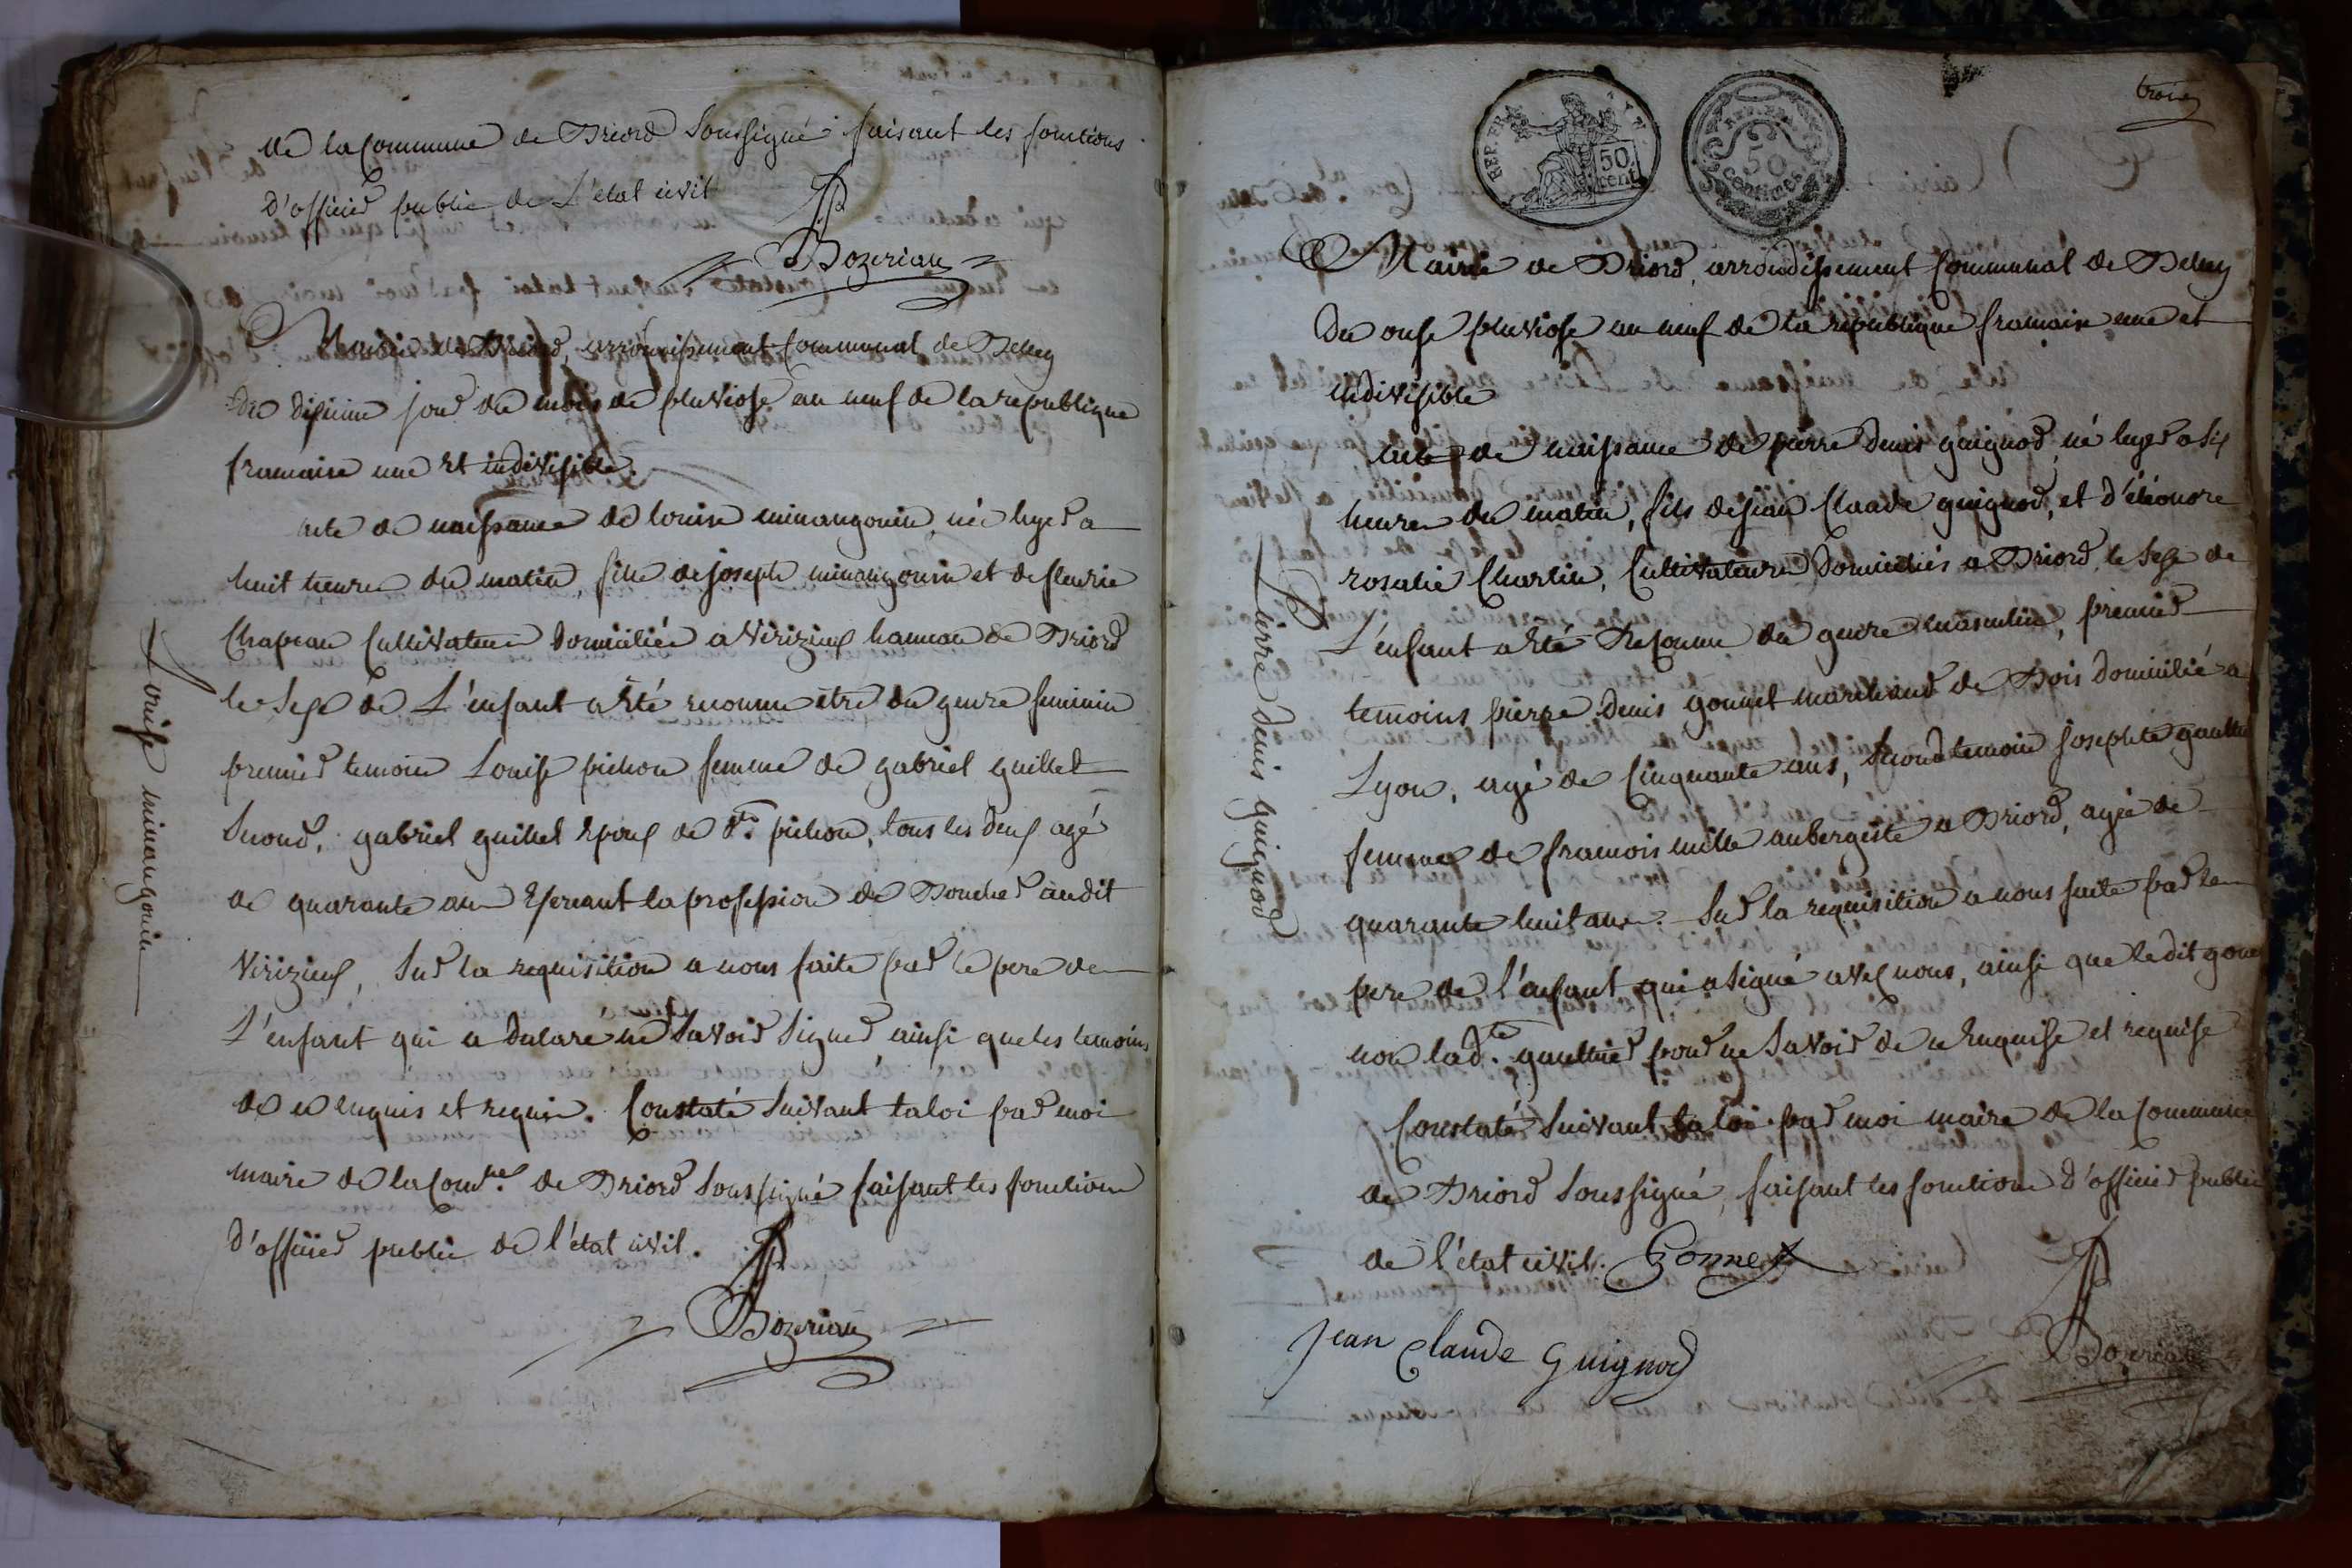 de la Commune de Briord Soussigné faisant les fonctions
d'officier public de L'etat civil
Bozerian
Mairie de Briord, arrondissement Communal de Belley
Du dixieme jour du mois de pluviose an neuf de la republique
francaise une et indivisible.
acte de naissance de louise minangouin, née hyer a
huit heures du matin, fille de joseph minangouin et de fleurie
Chapeau Cultivateurs Domiciliés a Vérizieux hameau de Briord
le sexe de L'enfant a été reconnu etre du genre feminin
premier temoin Louise pichon femme de gabriel guillet
Second, gabriel guillet Epoux de dte. pichon, tous les deux agé
de quarante ans Exercant la profession de Boucher audit
Virizieux, Sur la requisition a nous faite par le pere de
L'enfant qui a Declaré ne Savoir Signer ainsi que les temoins
de ce enquis et requis. Constaté Suivant la loi par moi
maire de la Comne. de Briord Soussigné faisant les fonctions
d'officier public de l'état civil.
Bozerian
Louise minangouin
trois
REP. FRA
50 cent
REP. FRA.
50 centimes
Mairie de Briord, arrondissement Communal de Belley
Du onze pluviose an neuf de la republique francaise une et
indivisible
acte de naissance de pierre Denis guignod, né hyer a six
heures du matin, fils de jean Claude guignod, et d'éléonore
rosalie Charlin, Cultivateurs Domiciliés a Briord, le Sexe de
L'enfant a été Reconnu du genre masculin, premier
temoins pierre Denis gonnet marchand de Bois domicilié a
Lyon, agé de Cinquante ans, Second temoin josephte gauttier
femme de francois mille aubergiste a Briord, agée de
quarante huit ans. Sur la requisition a nous faite par le
pere de l'enfant qui a signé avec nous, ainsi que ledit gonnet
non lad.te gauttier pour ne Savoir de ce Enquise et requise
Constaté Suivant la loi par moi maire de la Commune
de Briord Soussigné, faisant les fonctions D'officier public
de l'état civil. Gonnet
jean Claude Guignod
Bozerian
Pierre Denis guignod